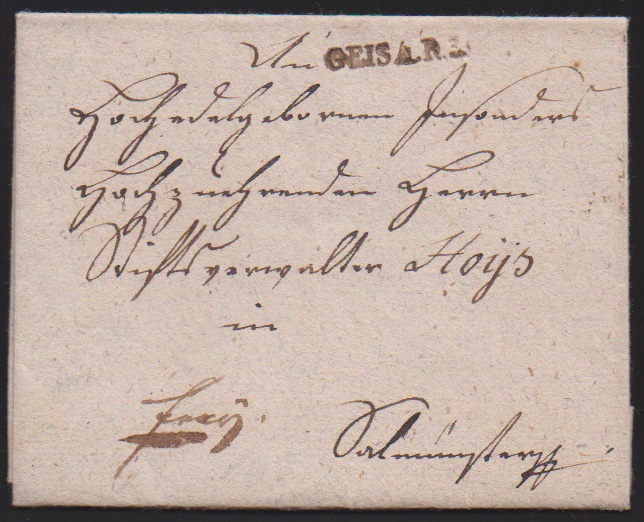 An GEISA.R.3.
Hochedelgebornen Insonders
Hochzuehrenden Herrn
Stiftsverwalter Hoÿs
in
frey.
Salmünster